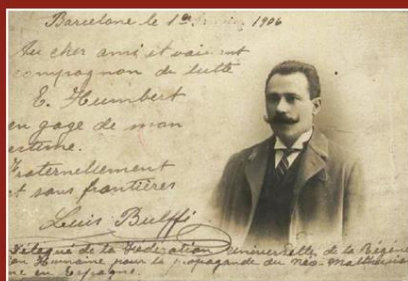 Barcelone le 1er 1906
Au cher ami et vaillant
compagnon de lutte
E. Humbert
en gage de mon
estime.
Fraternellement
et sans frontières
Luis Bulffi
Délégué de la Fédération universelle de la Régéné
on Humaine pour la propagande du néo-Malthusia
me en Espagne.